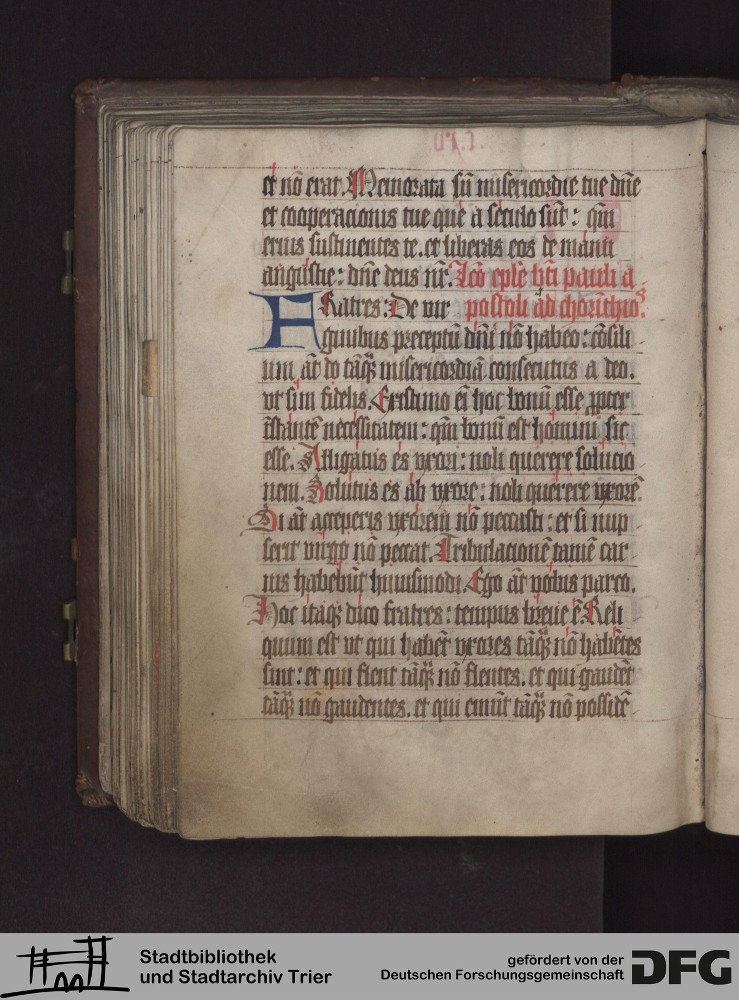 et nō erat. Memorata sū misericordie tue dñe
et cooperacionis tue que a seculo sūt: qm̄
eruis sustinentes te. et liberas eos de manu
angustie: dñe deus nr̄. Lcō eplē bt̄i pauli a
FRatres: De vir postoli ad chorīthios.
ginibus preceptū dñi nō habeo: cōsili
um at̄ do tāqꝫ misericordiā consecutus a deo.
vt sim fidelis. Existimo ei̅ hoc bonū esse ꝓpter
īstantē necessitatem: qm̄ bonū est homini sic
esse. Alligatus es vxori: noli querere solucio
nem. Solutus es ab vxore: noli querere vxorē.
Si at̄ acceperis vxorem nō peccasti: et si nup
serit virgo nō peccat. Tribulacionē tamē car
nis habebūt huiusmodi. Ego at̄ vobis parco.
Hoc itaqꝫ dico fratres: tempus breue ē. Reli
quum est vt qui habēt vxores tāqꝫ nō habētes
sint: et qui flent tāqꝫ nō flentes. et qui gaudēt
tāqꝫ nō gaudentes. et qui emūt tāqꝫ nō possidē
Stadtbibliothek
und Stadtarchiv Trier
gefördert von der
Deutschen Forschungsgemeinschaft
DFG